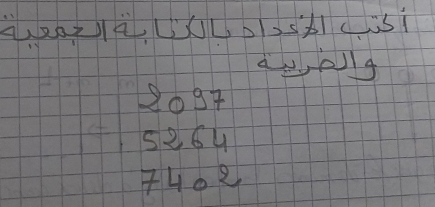 أكتب الأعداد بالكتابة الجمعية
والضربية
2097
5264
7402